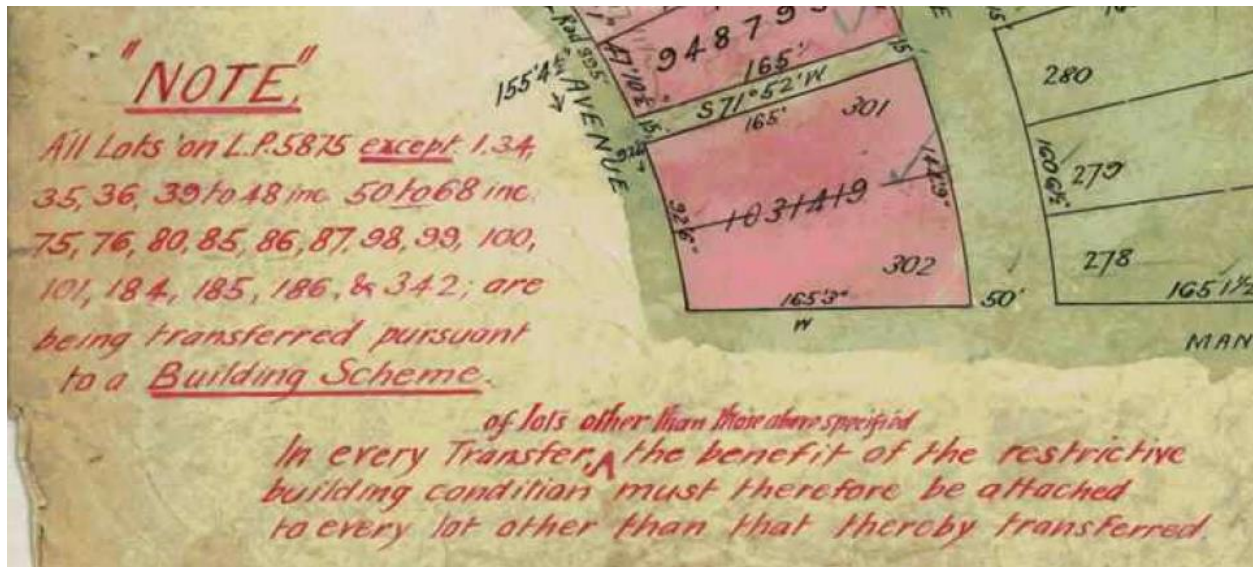 "NOTE"
All Lots on L.P.5875 except 1.34,
35, 36, 39 to 48 inc. 50 to 68 inc.
75, 76, 80, 85, 86, 87, 98, 99, 100,
101, 184, 185, 186, & 342; are
being transferred pursuant
to a Building Scheme.
of lots other than those above specified
In every Transfer, the benefit of the restrictive
building condition must therefore be attached
to every lot other than that thereby transferred.
155'4½"
AVENUE
47'10½"
94879
165'
15'
S71°52'W
165'
301
15'
92'6"
1031419
144'9"
302
165'3"
W
50'
15'
280
160'6½"
279
278
165 1½
MAN